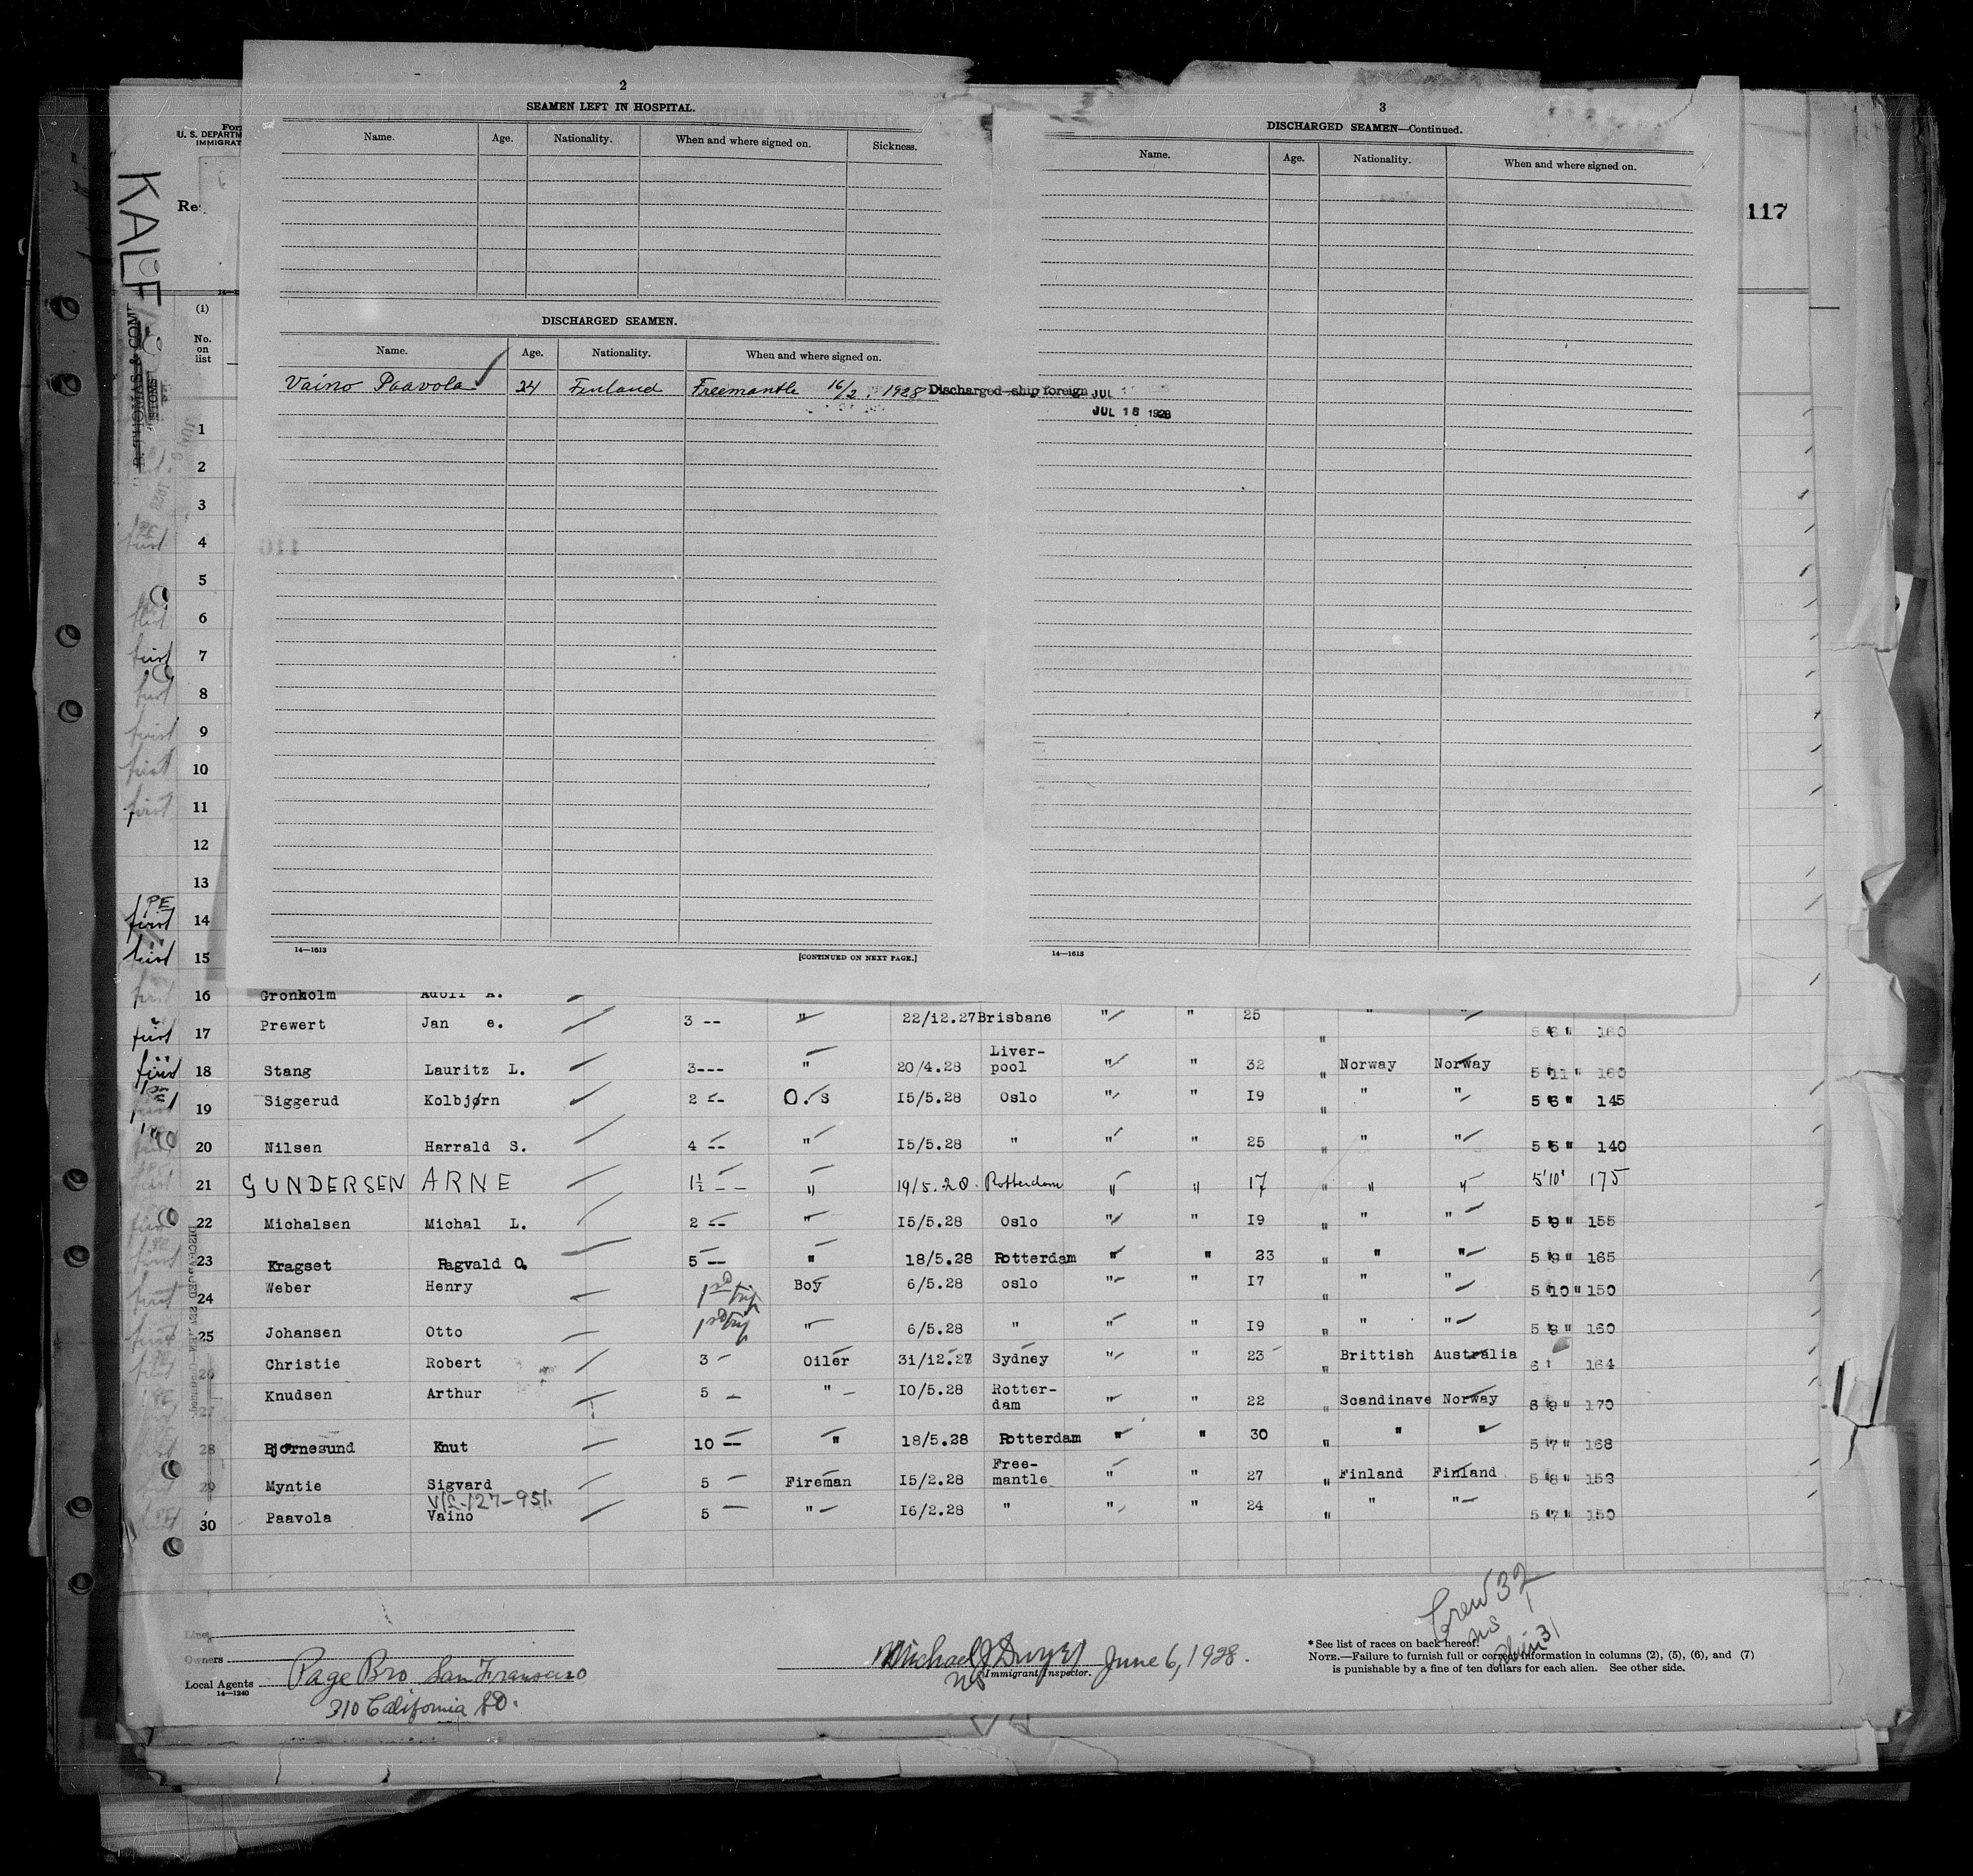 2
SEAMEN LEFT IN HOSPITAL.
Name. Age. Nationality. When and where signed on. Sickness.
DISCHARGED SEAMEN.
Name. Age. Nationality. When and where signed on.
Vaino Paavola 24 Finland Freemantle 16/2. 1928 Discharged ship foreign JUL
JUL 18 1928
14—1613 [CONTINUED ON NEXT PAGE.]
3
DISCHARGED SEAMEN—Continued.
Name. Age. Nationality. When and where signed on.
14—1613
117
U. S. DEPARTM
IMMIGRAT
KALF
(1)
No.
on
list
1
2
3
first 4
5
first 6
first 7
first 8
first 9
first 10
first 11
12
13
PE
first 14
first 15
first 16 Gronholm Adolf A.
first 17 Prewert Jan e. 3 -- " 22/12.27 Brisbane " " 25 " " " 5 6 " 160
first 18 Stang Lauritz L. 3--- " 20/4.28 Liver-pool " " 32 " Norway Norway 5 11 " 160
19 Siggerud Kolbjørn 2 -- O.s 15/5.28 Oslo " " 19 " " " 5 6 " 145
20 Nilsen Harrald S. 4 -- " 15/5.28 " " " 25 " " " 5 5 " 140
21 GUNDERSEN ARNE 1½ -- " 19/5.28 Rotterdam " " 17 " " " 5'10' 175
22 Michalsen Michal L. 2 -- " 15/5.28 Oslo " " 19 " " " 5 9 " 155
23 Kragset Ragvald O. 5 -- " 18/5.28 Rotterdam " " 23 " " " 5 9 " 165
24 Weber Henry 1st trip Boy 6/5.28 oslo " " 17 " " " 5 10 " 150
25 Johansen Otto 1st trip " 6/5.28 " " " 19 " " " 5 8 " 160
26 Christie Robert 3 - Oiler 31/12.27 Sydney " " 23 " Brittish Australia 6 ' 164
27 Knudsen Arthur 5 - " 10/5.28 Rotter-dam " " 22 " Scandinave Norway 5 9 " 170
28 Bjørnesund Knut 10 -- " 18/5.28 Rotterdam " " 30 " " " 5 7 " 168
29 Myntie Sigvard 5 - Fireman 15/2.28 Free-mantle " " 27 " Finland Finland 5 8 " 153
30 Paavola Vaino 5 " 16/2.28 " " " 24 " " " 5 7 " 150
Crew 32
Line
Owners
Local Agents Page Bro San Fransisco
14—1240
310 California St.
Michael J Dwyer June 6, 1928.
Immigrant Inspector.
* See list of races on back hereof.
NOTE.—Failure to furnish full or correct information in columns (2), (5), (6), and (7)
is punishable by a fine of ten dollars for each alien. See other side.